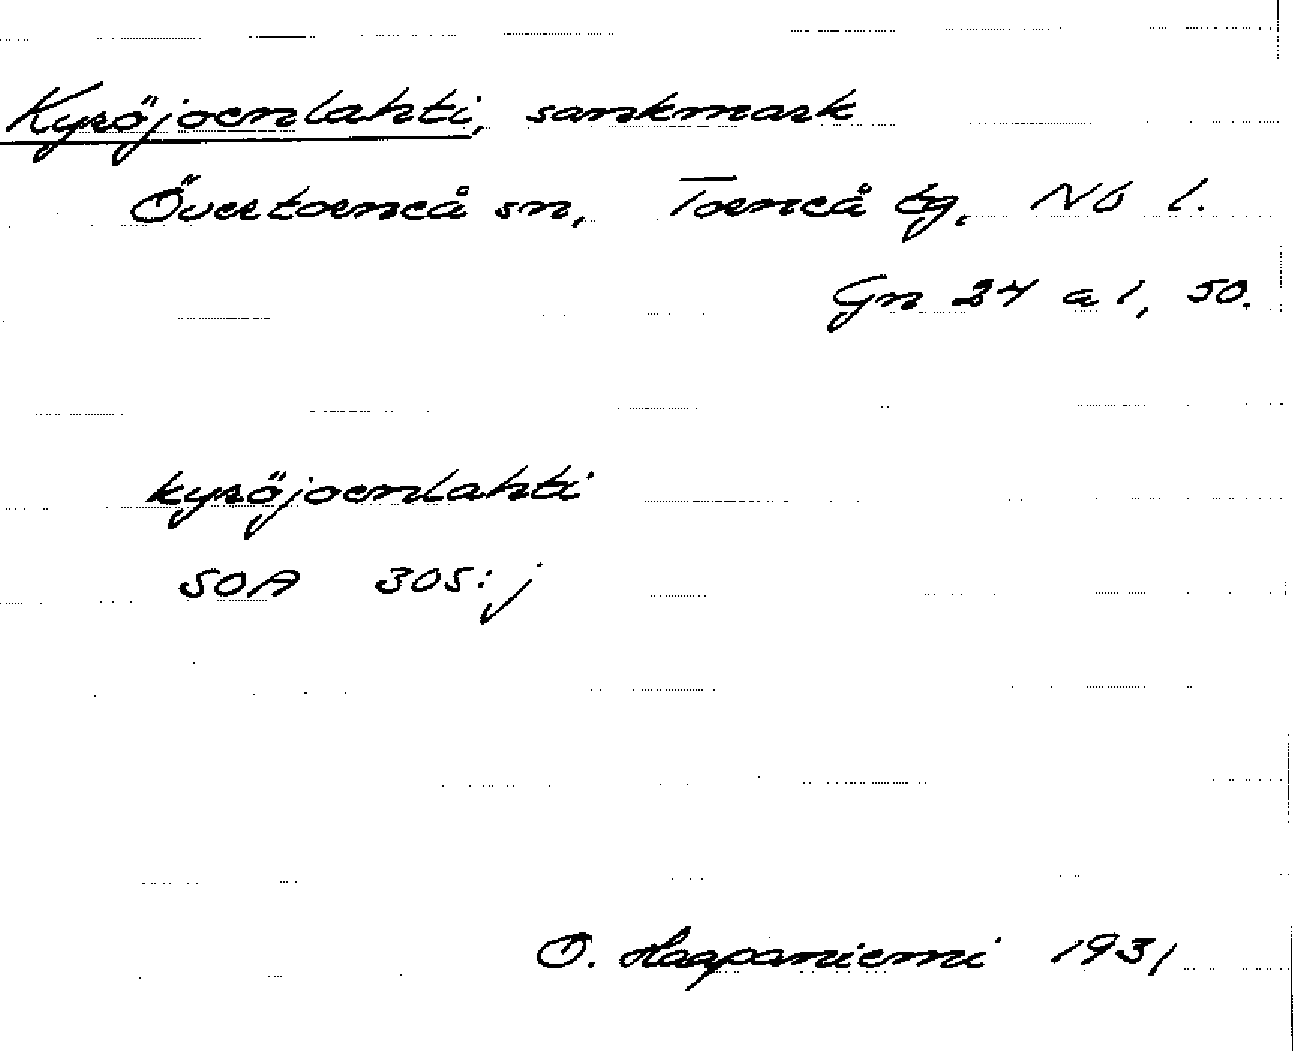 Kyröjoenlahti, sankmark
Övertorneå sn, Torneå tg, Nb l.
Gn 24 a 1, 50.
kyröjoenlahti
SOA 305:j
O. Haapaniemi 1931